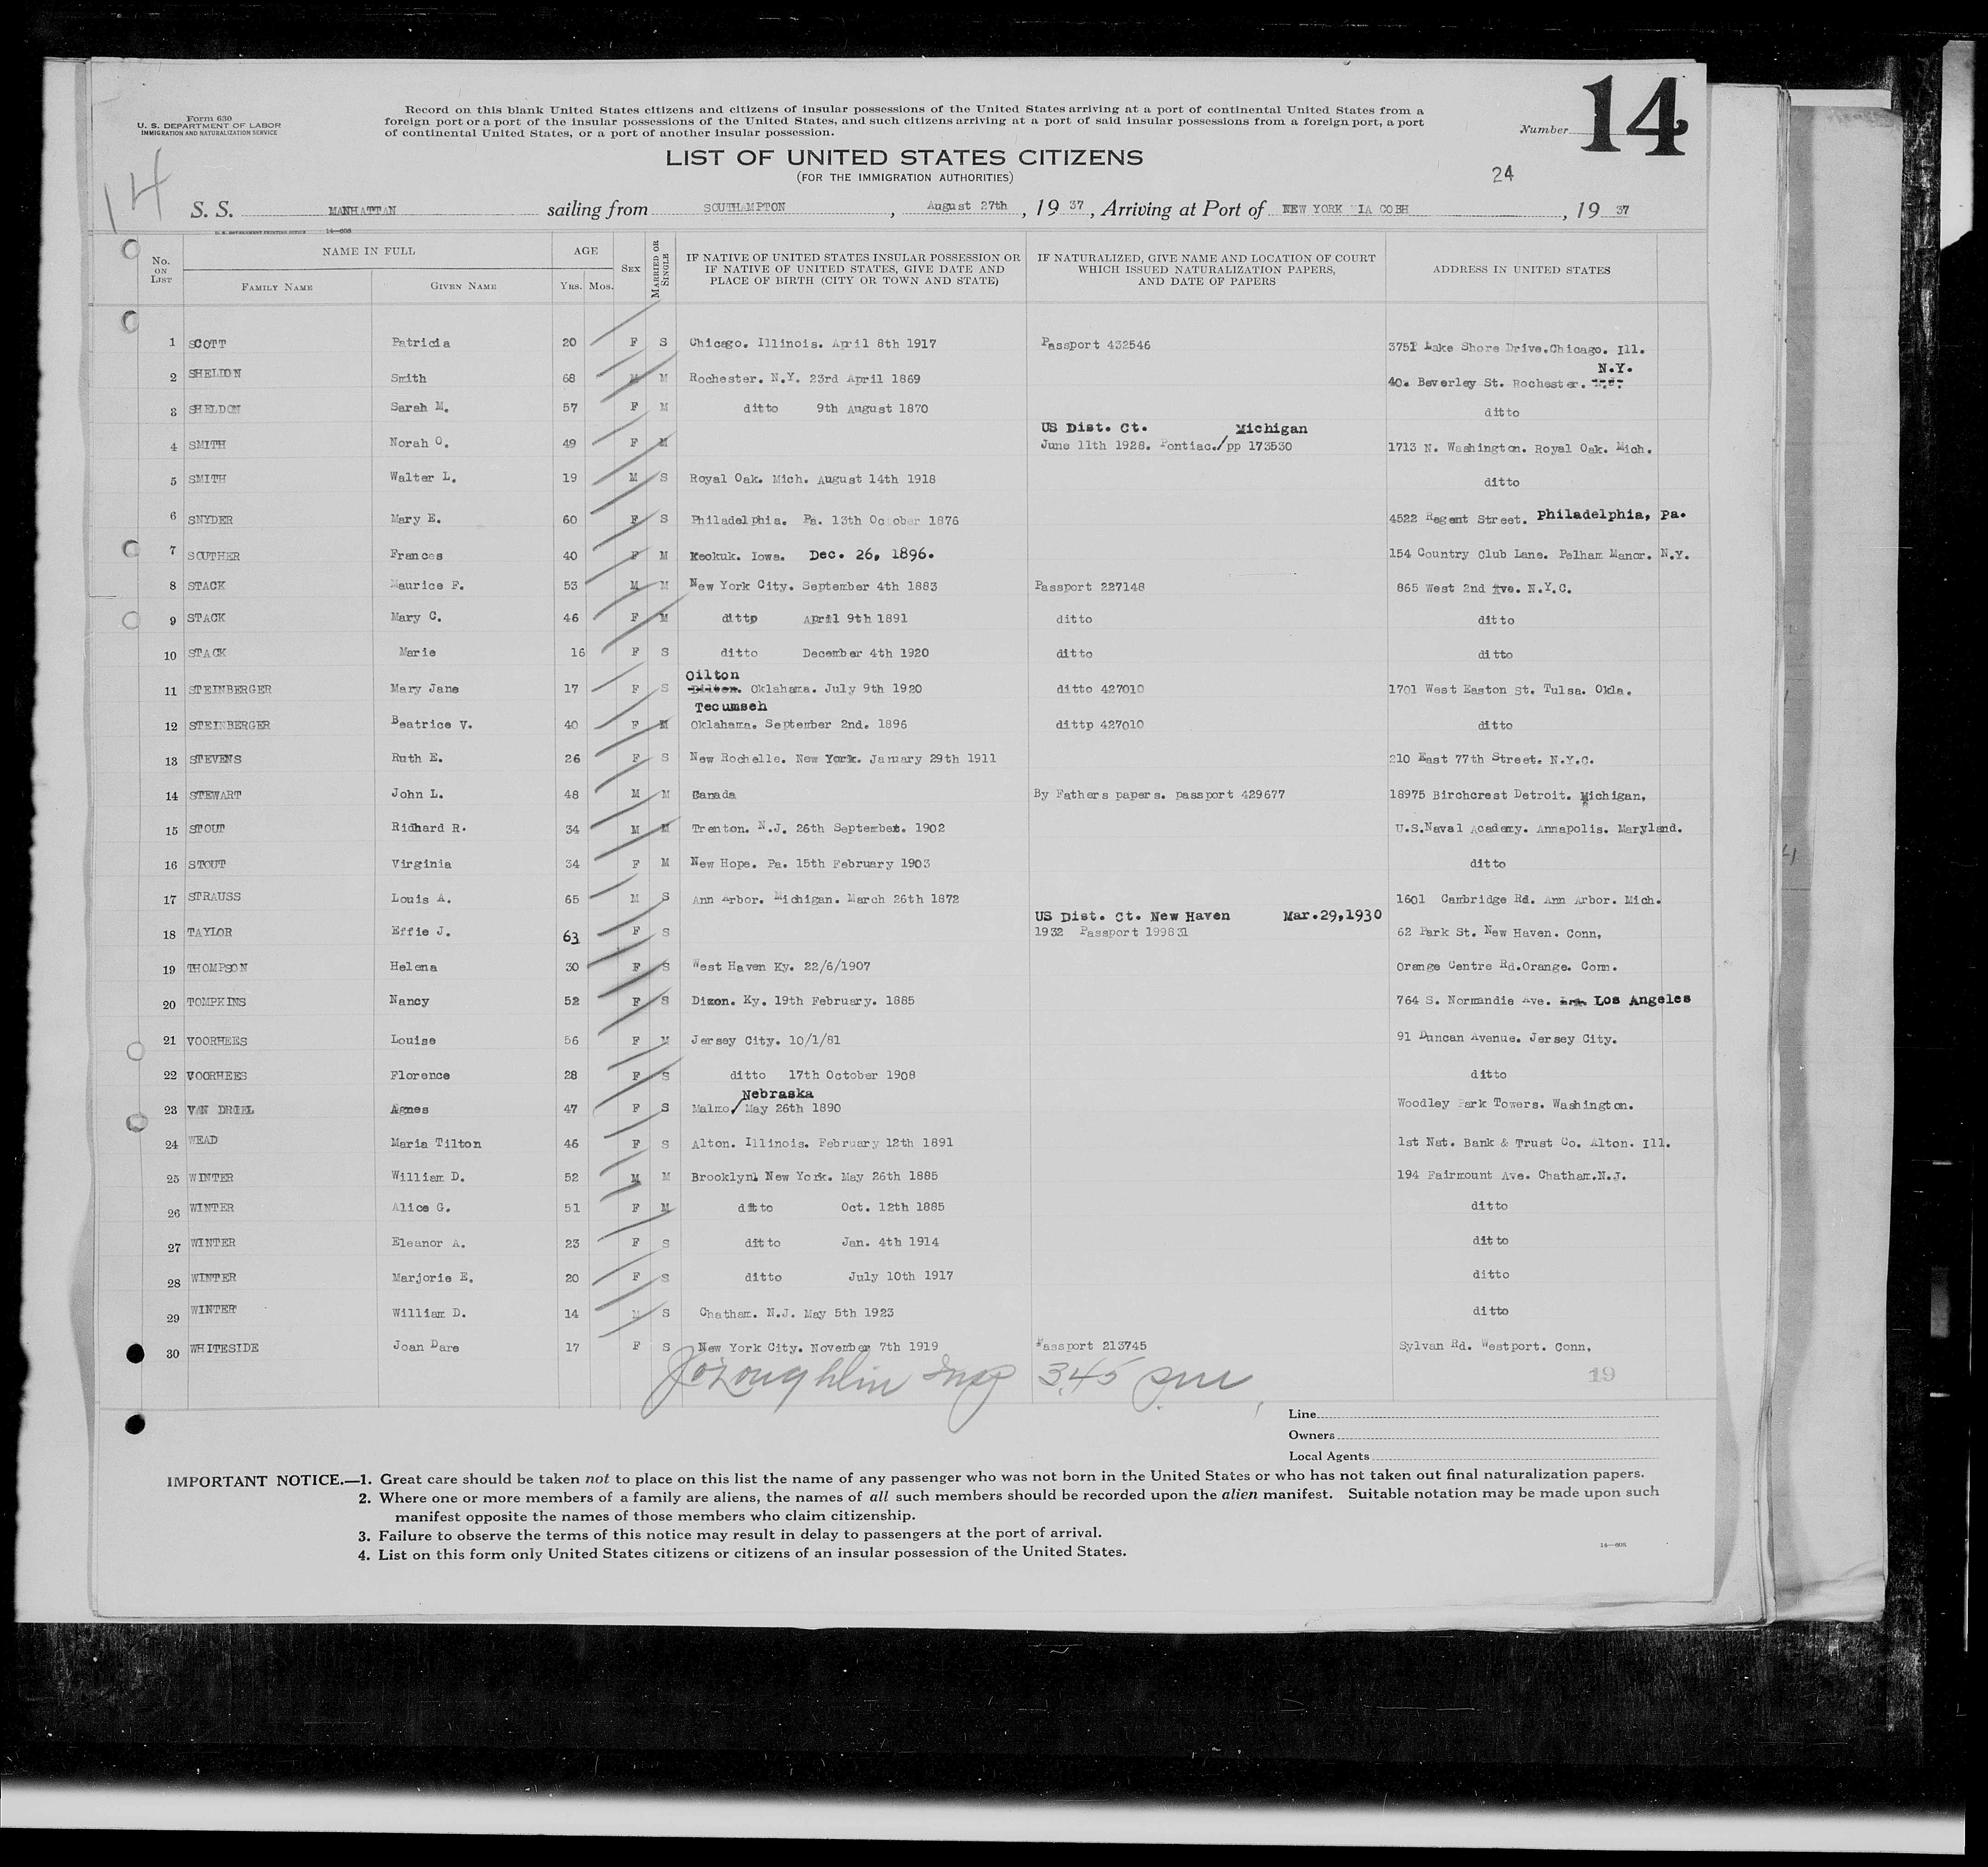 Form 630
U. S. DEPARTMENT OF LABOR
IMMIGRATION AND NATURALIZATION SERVICE
Record on this blank United States citizens and citizens of insular possessions of the United States arriving at a port of continental United States from a
foreign port or a port of the insular possessions of the United States, and such citizens arriving at a port of said insular possessions from a foreign port, a port
of continental United States, or a port of another insular possession.
Number 14
LIST OF UNITED STATES CITIZENS
(FOR THE IMMIGRATION AUTHORITIES)
24
14
S. S. MANHATTAN sailing from SOUTHAMPTON, August 27th, 1937, Arriving at Port of NEW YORK VIA COBH, 1937
U. S. GOVERNMENT PRINTING OFFICE 14—608
No. ON LIST NAME IN FULL AGE SEX MARRIED OR SINGLE IF NATIVE OF UNITED STATES INSULAR POSSESSION OR IF NATIVE OF UNITED STATES, GIVE DATE AND PLACE OF BIRTH (CITY OR TOWN AND STATE) IF NATURALIZED, GIVE NAME AND LOCATION OF COURT WHICH ISSUED NATURALIZATION PAPERS, AND DATE OF PAPERS ADDRESS IN UNITED STATES
FAMILY NAME GIVEN NAME YRS. MOS.
1 SCOTT Patricia 20 F S Chicago. Illinois. April 8th 1917 Passport 432546 3751 Lake Shore Drive.Chicago. Ill.
N.Y.
2 SHELDON Smith 68 M M Rochester. N.Y. 23rd April 1869 40. Beverley St. Rochester.
3 SHELDON Sarah M. 57 F M ditto 9th August 1870 ditto
US Dist. Ct. Michigan
4 SMITH Norah O. 49 F M June 11th 1928. Pontiac./pp 173530 1713 N. Washington. Royal Oak. Mich.
5 SMITH Walter L. 19 M S Royal Oak. Mich. August 14th 1918 ditto
6 SNYDER Mary E. 60 F S Philadelphia. Pa. 13th October 1876 4522 Regent Street. Philadelphia, Pa.
7 SOUTHER Frances 40 F M Keokuk. Iowa. Dec. 26, 1896. 154 Country Club Lane. Pelham Manor. N.Y.
8 STACK Maurice F. 53 M M New York City. September 4th 1883 Passport 227148 865 West 2nd Ave. N.Y.C.
9 STACK Mary C. 46 F M dittp April 9th 1891 ditto ditto
10 STACK Marie 16 F S ditto December 4th 1920 ditto ditto
Oilton
11 STEINBERGER Mary Jane 17 F S Dilton. Oklahama. July 9th 1920 ditto 427010 1701 West Easton St. Tulsa. Okla.
Tecumseh
12 STEINBERGER Beatrice V. 40 F M Oklahama. September 2nd. 1896 dittp 427010 ditto
13 STEVENS Ruth E. 26 F S New Rochelle. New York. January 29th 1911 210 East 77th Street. N.Y.C.
14 STEWART John L. 48 M M Canada By Fathers papers. passport 429677 18975 Birchcrest Detroit. Michigan,
15 STOUT Ridhard R. 34 M M Trenton. N.J. 26th September. 1902 U.S.Naval Academy. Annapolis. Maryland.
16 STOUT Virginia 34 F M New Hope. Pa. 15th February 1903 ditto
17 STRAUSS Louis A. 65 M S Ann Arbor. Michigan. March 26th 1872 1601 Cambridge Rd. Ann Arbor. Mich.
US Dist. Ct. New Haven Mar.29,1930
18 TAYLOR Effie J. 63 F S 1932 Passport 199831 62 Park St. New Haven. Conn,
19 THOMPSON Helena 30 F S West Haven Ky. 22/6/1907 Orange Centre Rd.Orange. Conn.
20 TOMPKINS Nancy 52 F S Dixon. Ky. 19th February. 1885 764 S. Normandie Ave. Los Angeles
21 VOORHEES Louise 56 F M Jersey City. 10/1/81 91 Duncan Avenue. Jersey City.
22 VOORHEES Florence 28 F S ditto 17th October 1908 ditto
Nebraska
23 VAN DRIEL Agnes 47 F S Malmo/May 26th 1890 Woodley Park Towers. Washington.
24 WEAD Maria Tilton 46 F S Alton. Illinois. February 12th 1891 1st Nat. Bank & Trust Co. Alton. Ill.
25 WINTER William D. 52 M M Brooklyn. New York. May 26th 1885 194 Fairmount Ave. Chatham.N.J.
26 WINTER Alice G. 51 F M ditto Oct. 12th 1885 ditto
27 WINTER Eleanor A. 23 F S ditto Jan. 4th 1914 ditto
28 WINTER Marjorie E. 20 F S ditto July 10th 1917 ditto
29 WINTER William D. 14 M S Chatham. N.J. May 5th 1923 ditto
30 WHITESIDE Joan Dare 17 F S New York City. November 7th 1919 Passport 213745 Sylvan Rd. Westport. Conn,
J O'Loughlin Insp 3.45 pm
19
Line
Owners
Local Agents
IMPORTANT NOTICE.—1. Great care should be taken not to place on this list the name of any passenger who was not born in the United States or who has not taken out final naturalization papers.
2. Where one or more members of a family are aliens, the names of all such members should be recorded upon the alien manifest. Suitable notation may be made upon such
manifest opposite the names of those members who claim citizenship.
3. Failure to observe the terms of this notice may result in delay to passengers at the port of arrival.
4. List on this form only United States citizens or citizens of an insular possession of the United States.
14—608